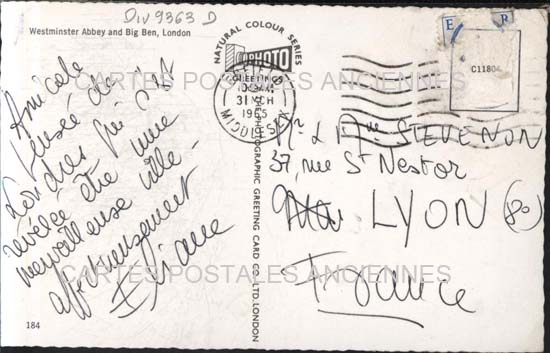 Div 9363 D
Westminster Abbey and Big Ben, London
Amicale
Pensée de
Londres qui s'est
révélée être une
merveilleuse ville.
affectueusement
Eliane
184
NATURAL COLOUR SERIES
PHOTO
GREETING CARD CO. LTD. LONDON
GREETINGS
31 MCH
1965
MIDDLSX
E R
C11804
Mr & Mme STEVENON
37, rue St Nestor
LYON (8e)
France
CARTES POSTALES ANCIENNES
CARTES POSTALES ANCIENNES